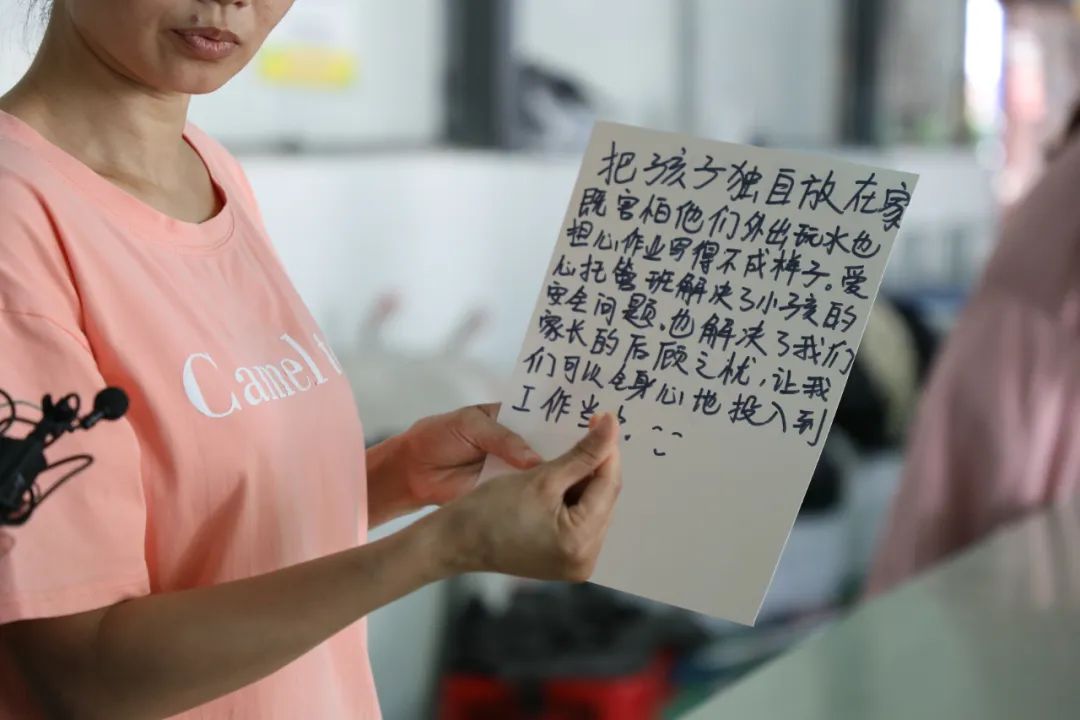 把孩子独自放在家
既害怕他们外出玩水也
担心作业写得不成样子。爱
心托管班解决了小孩的
安全问题。也解决了我们
家长的后顾之忧，让我
们可以全身心地投入到
工作当
Camel